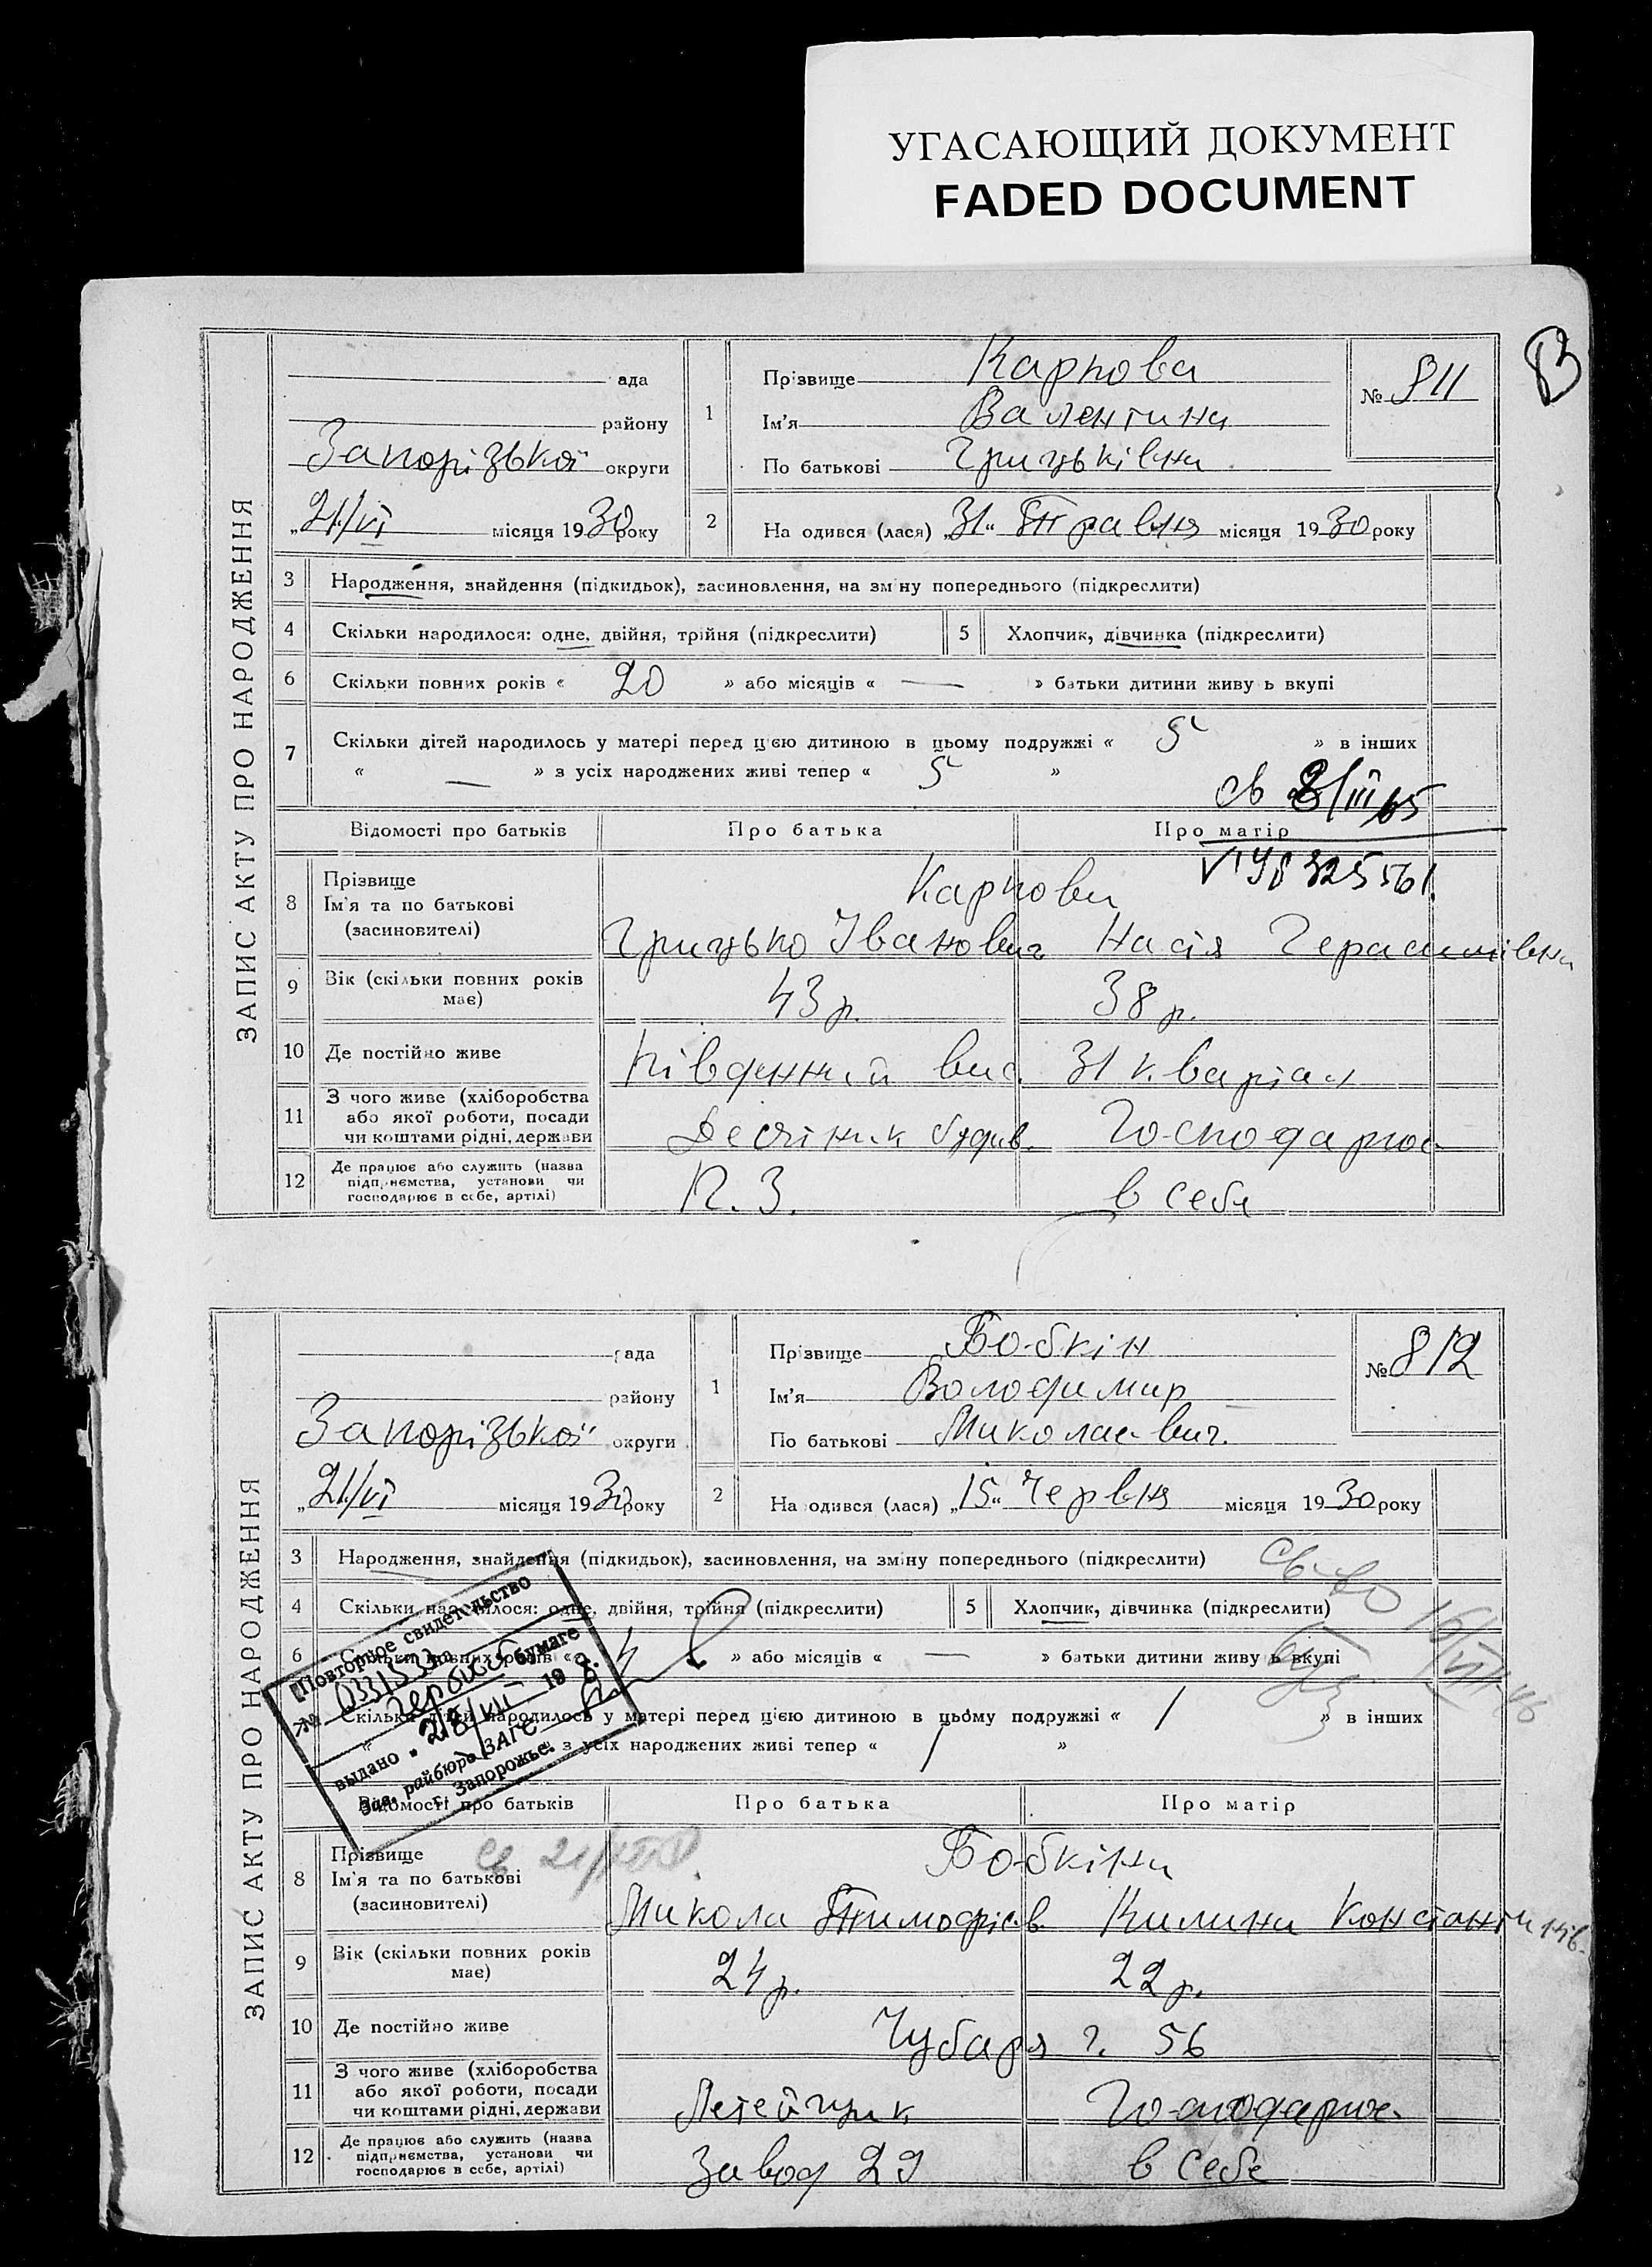 УГАСАЮЩИЙ ДОКУМЕНТ
FADED DOCUMENT
83
ЗАПИС АКТУ ПРО НАРОДЖЕННЯ
ада
району
Запорізької округи
„21/VI місяця 1930 року
1
Прізвище Карпова
Ім'я Валентина
По батькові Грицьківна
№ 811
2
На одився (лася) „31" Травня місяця 1930 року
3 Народження, знайдення (підкидьок), засиновлення, на зміну попереднього (підкреслити)
4 Скільки народилося: одне, двійня, трійня (підкреслити) 5 Хлопчик, дівчинка (підкреслити)
6 Скільки повних років « 20 » або місяців « — » батьки дитини живу ь вкупі
7 Скільки дітей народилось у матері перед цією дитиною в цьому подружжі « 5 » в інших
« — » з усіх народжених живі тепер « 5 »
св 8/III 65
Відомості про батьків Про батька Про матір
325561
8 Прізвище
Ім'я та по батькові
(засиновителі)
Карпови
Грицько Іванович Настя Герасимівна
9 Вік (скільки повних років має) 43 р. 38 р.
10 Де постійно живе Південний вис. 31 квартал
11 З чого живе (хліборобства
або якої роботи, посади
чи коштами рідні, держави
Десятник будів. Господарює
12 Де працює або служить (назва
підприємства, установи чи
господарює в себе, артілі)
П. З. в себе
ЗАПИС АКТУ ПРО НАРОДЖЕННЯ
рада
району
Запорізької округи
„21/VI місяця 1930 року
1
Прізвище Бобкін
Ім'я Володимир
По батькові Миколаевич.
№ 812
2
На одився (лася) „15" Червня місяця 1930 року
3 Народження, знайдення (підкидьок), засиновлення, на зміну попереднього (підкреслити)
4 Скільки народилося: одне, двійня, трійня (підкреслити) 5 Хлопчик, дівчинка (підкреслити)
6 Скільки повних років « » або місяців « — » батьки дитини живу ь вкупі
Скільки дітей народилось у матері перед цією дитиною в цьому подружжі « 1 » в інших
« » з усіх народжених живі тепер « 1 »
Св-во
Повторное свидетельство
№ на
гербовой бумаге
выдано 19
Зав. райбюро ЗАГС
г. Запорожье.
Відомості про батьків Про батька Про матір
8 Прізвище
Ім'я та по батькові
(засиновителі)
Бобкіни
Микола Тимофієв. Килина Константинів.
9 Вік (скільки повних років має) 24 р. 22 р.
10 Де постійно живе Чубаря 56
11 З чого живе (хліборобства
або якої роботи, посади
чи коштами рідні, держави
Летейщик Господарює
12 Де працює або служить (назва
підприємства, установи чи
господарює в себе, артілі)
Завод 29 в себе